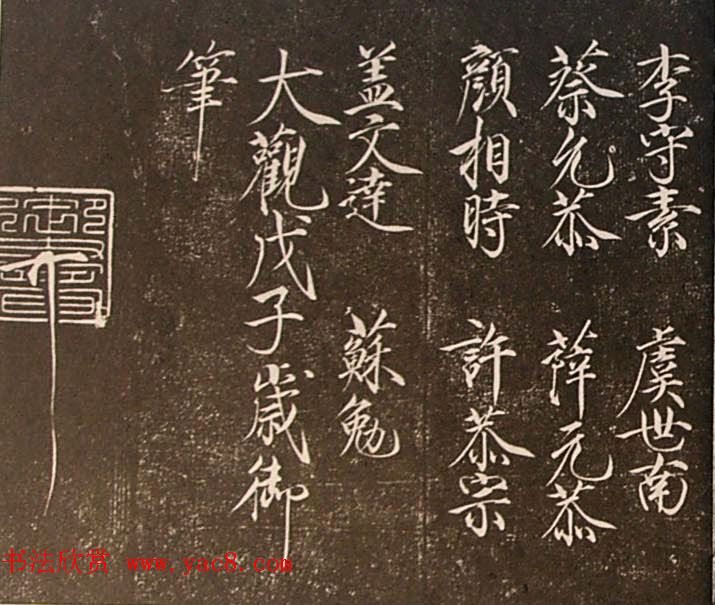 李守素 虞世南
蔡允恭 薛元恭
顏相時 許恭宗
盖文達 蘇勉
大觀戊子歲御
筆
书法欣赏 www.yac8.com